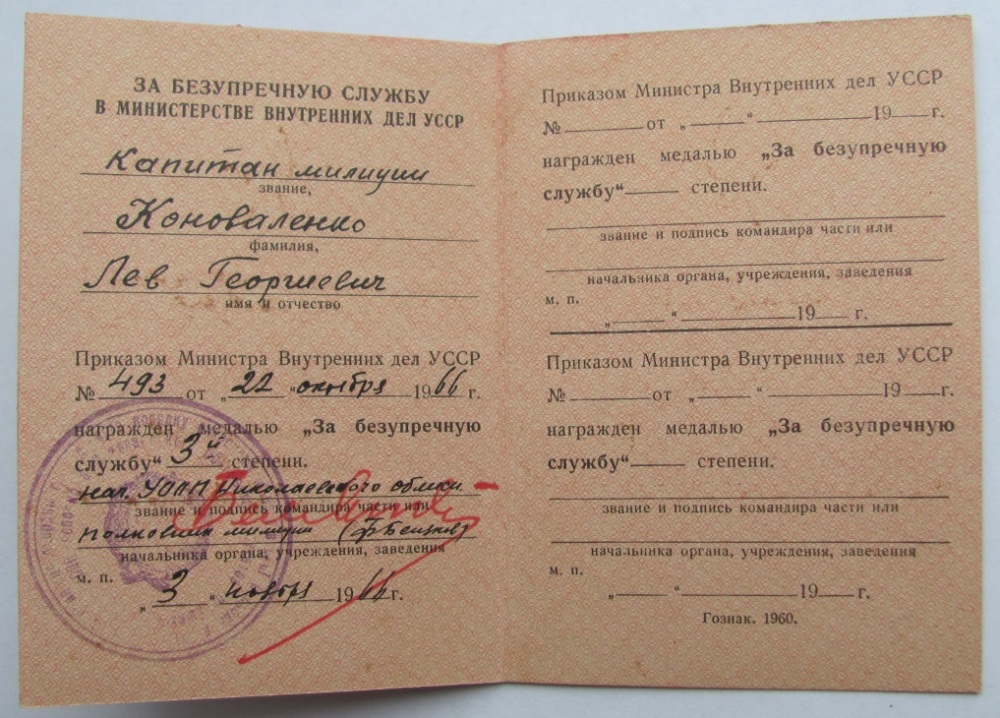 ЗА БЕЗУПРЕЧНУЮ СЛУЖБУ
В МИНИСТЕРСТВЕ ВНУТРЕННИХ ДЕЛ УССР
Капитан милиции
звание,
Коноваленко
фамилия,
Лев Георгиевич
имя и отчество
Приказом Министра Внутренних дел УССР
№ 493 от „22“ октября 1966 г.
награжден медалью „За безупречную
службу“ 3й степени.
нач. УООП Николаевского облисп.
звание и подпись командира части или
полковник милиции
начальника органа, учреждения, заведения
м. п.
„3“ ноября 1966 г.
Приказом Министра Внутренних дел УССР
№ от „ “ 19 г.
награжден медалью „За безупречную
службу“ степени.
звание и подпись командира части или
начальника органа, учреждения, заведения
м. п.
„ “ 19 г.
Приказом Министра Внутренних дел УССР
№ от „ “ 19 г.
награжден медалью „За безупречную
службу“ степени.
звание и подпись командира части или
начальника органа, учреждения, заведения
м. п.
„ “ 19 г.
Гознак. 1960.